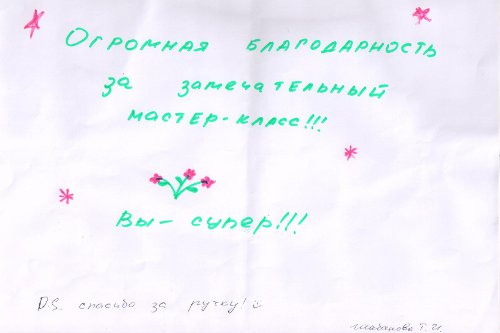 Огромная благодарность
за замечательный
мастер-класс!!!
Вы - супер!!!
P.S. спасибо за ручку!
Шабанова Г.И.